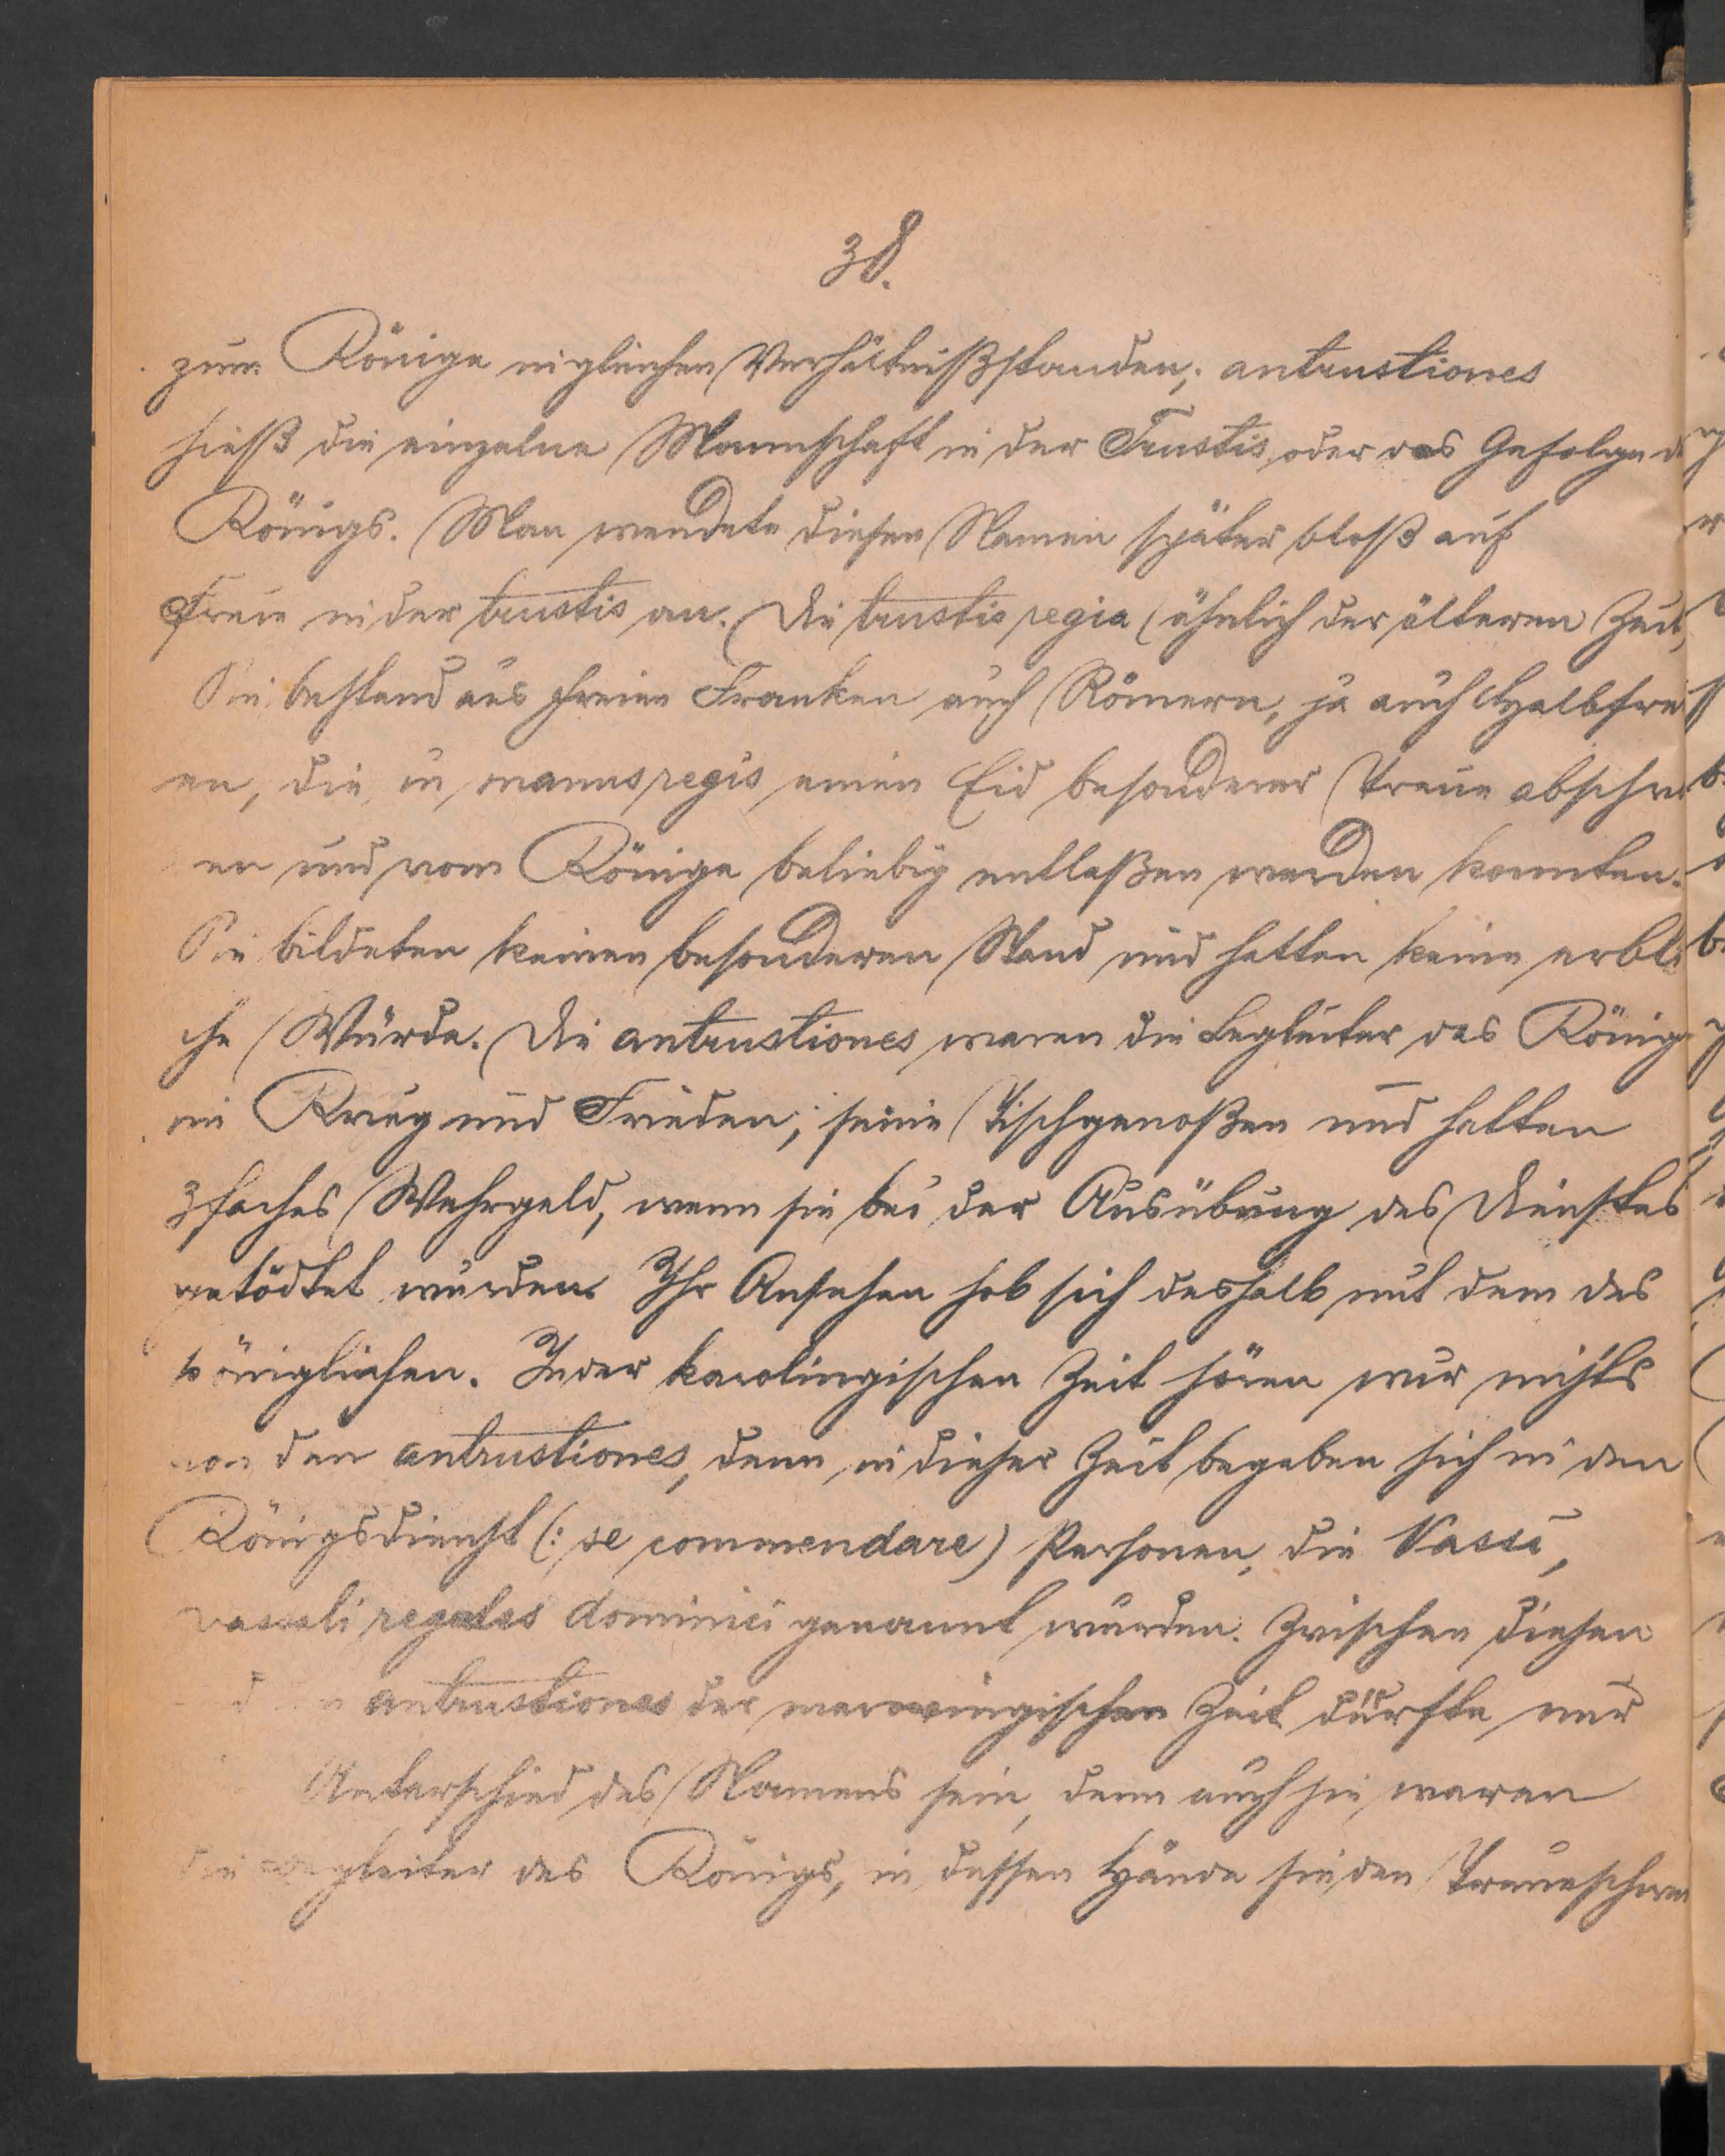 38.
zum Könige in gleichen Verhältniß standen; antrustiones
hieß die einzelne Mannschaft in der Trustis oder das Gefolge d
Königs. Man wendete diesen Namen später bloß auf
Freie in der trustis an. Die trustis regia (ähnlich der älteren Zeit,
Sie bestand aus freien Franken auch Römern, ja auch Halbfrei
en, die in manus regis einen Eid besonderer Treue abschwor
en und vom Könige beliebig entlaßen werden konnten.
Sie bildeten keinen besonderen Stand und hatten keine erbli
che Würde. Die antrustiones waren die Begleiter des König
in Krieg und Frieden; seine Tischgenoßen und hatten
3faches Wehrgeld, wenn sie bei der Ausübung des Dienstes
getödtet wurden. Ihr Ansehen hob sich deshalb mit dem des
königlichen. In der karolingischen Zeit hören wir nichts
von den antrustiones, denn in dieser Zeit begeben sich in den
Königsdienst (: se commendare) Personen, die Vassi,
vassali regales dominici genannt wurden. Zwischen diesen
d n antrustiones der merowingischen Zeit dürfte nur
Unterschied des Namens sein, denn auch sie waren
die Begleiter des Königs, in dessen Hände sie den Treueschwu